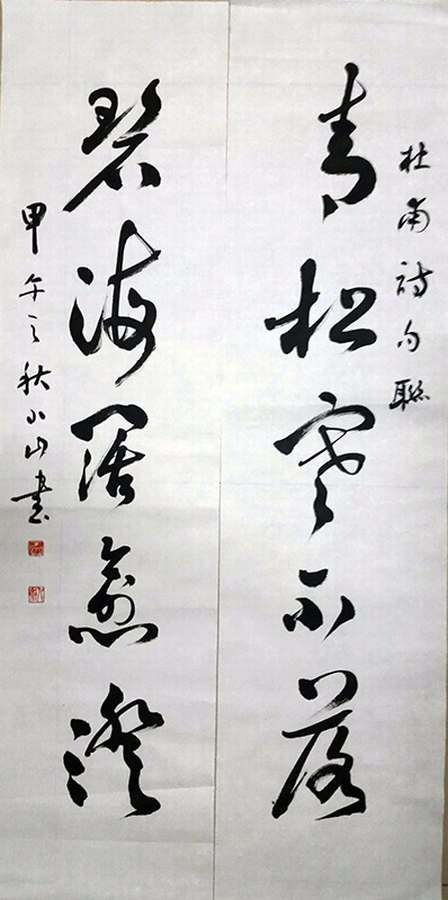 杜甫詩句聯
青松寒不落
碧海闊愈澄
甲午之秋小山書